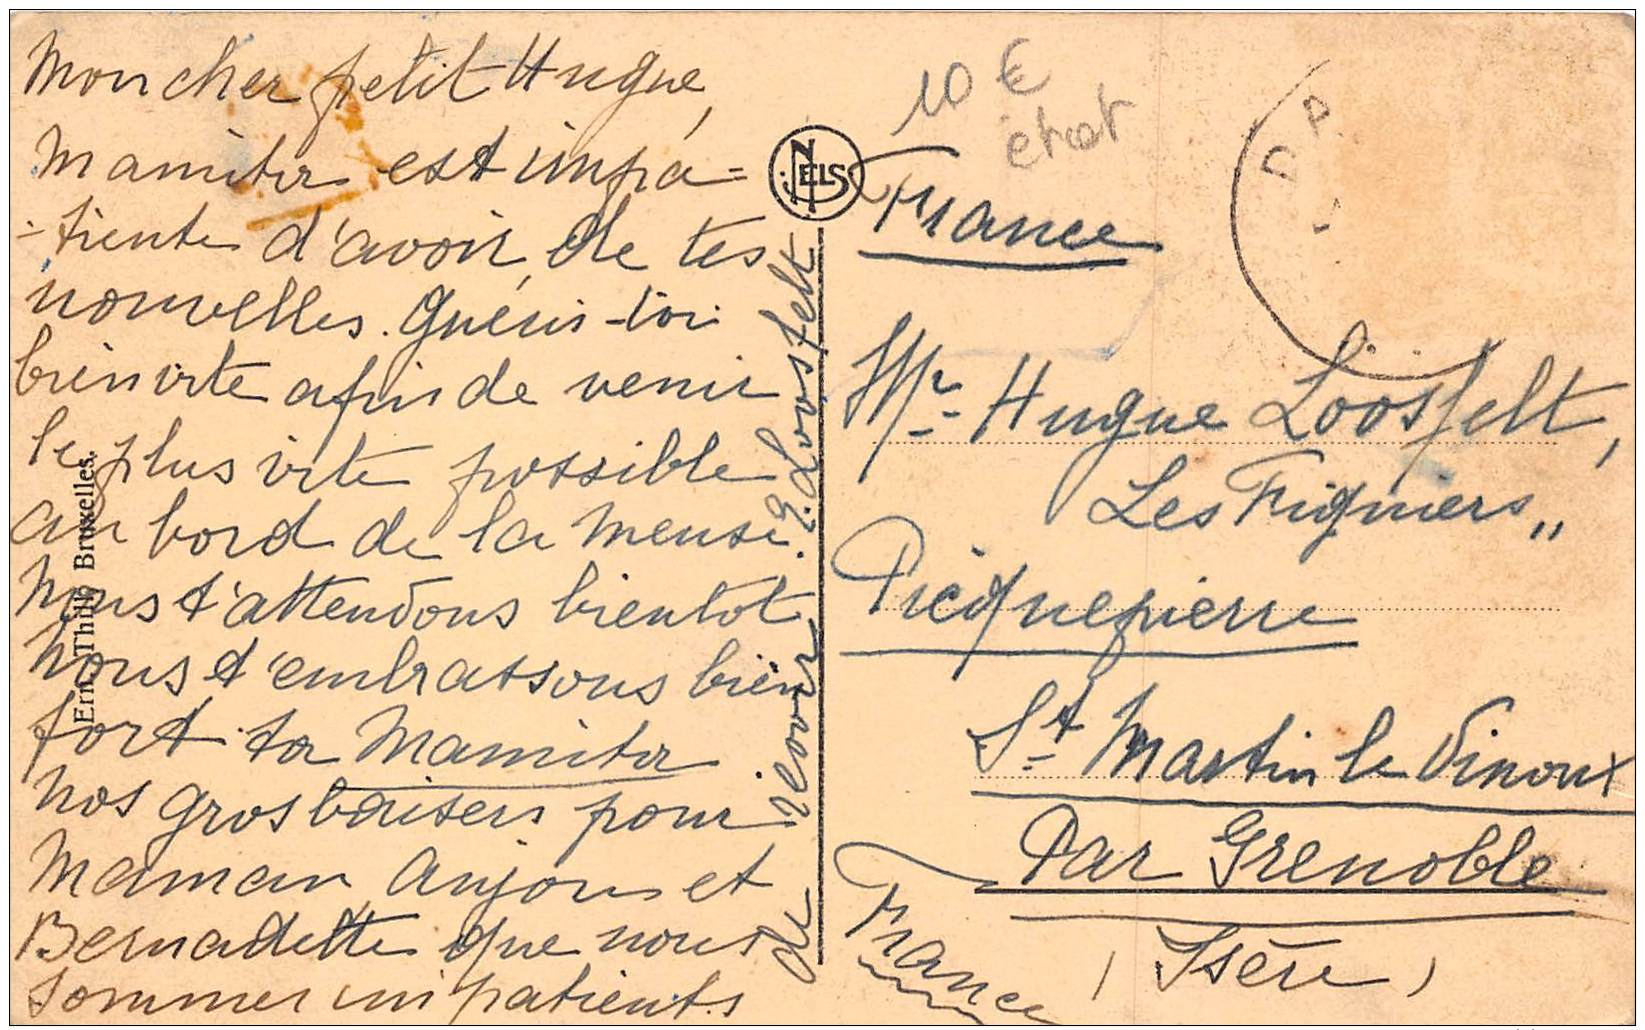 Mon cher petit Hugue,
Mamita est impa=
-tiente d'avoir de tes
nouvelles. Guéris-toi
bien vite afin de venir
le plus vite possible
au bord de la Meuse.
Nous t'attendons bientot
Nous t'embrassons bien
fort ta Mamita
Nos gros baisers pour
Maman et
Bernadette que nous
sommes impatients
de revoir. E. Loosfelt
Ern. Thill, Bruxelles.
NELS
10 €
état
France
Mr Hugue Loosfelt,
Les Figuiers,,
Picquepierre
St Martin le Vinoux
Par Grenoble
(Isère)
France